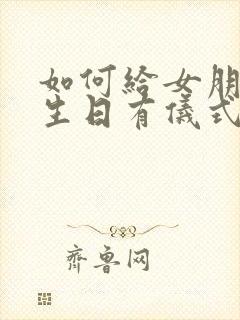 如何給女朋
生日有儀式
齊魯网